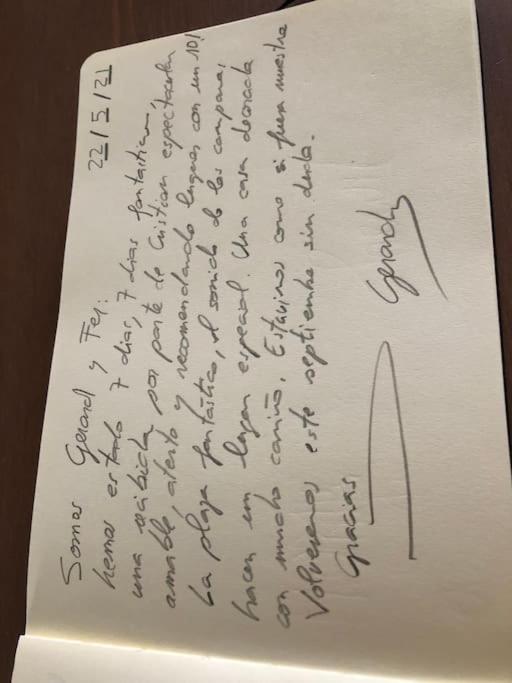 22/5/21
Somos Gerard y Fer:
hemos estado 7 dias, 7 dias fantasticos,
una recibida por parte de Cristian espectacular
amable, atento y recomendando lugares con un 10!
La playa fantástica, el sonido de las campanas
hacen un lugar especial. Una casa decorada
con mucho cariño. Estuvimos como si fuera nuestra
Volveremos este septiembre sin duda.
Gracias
Gerard